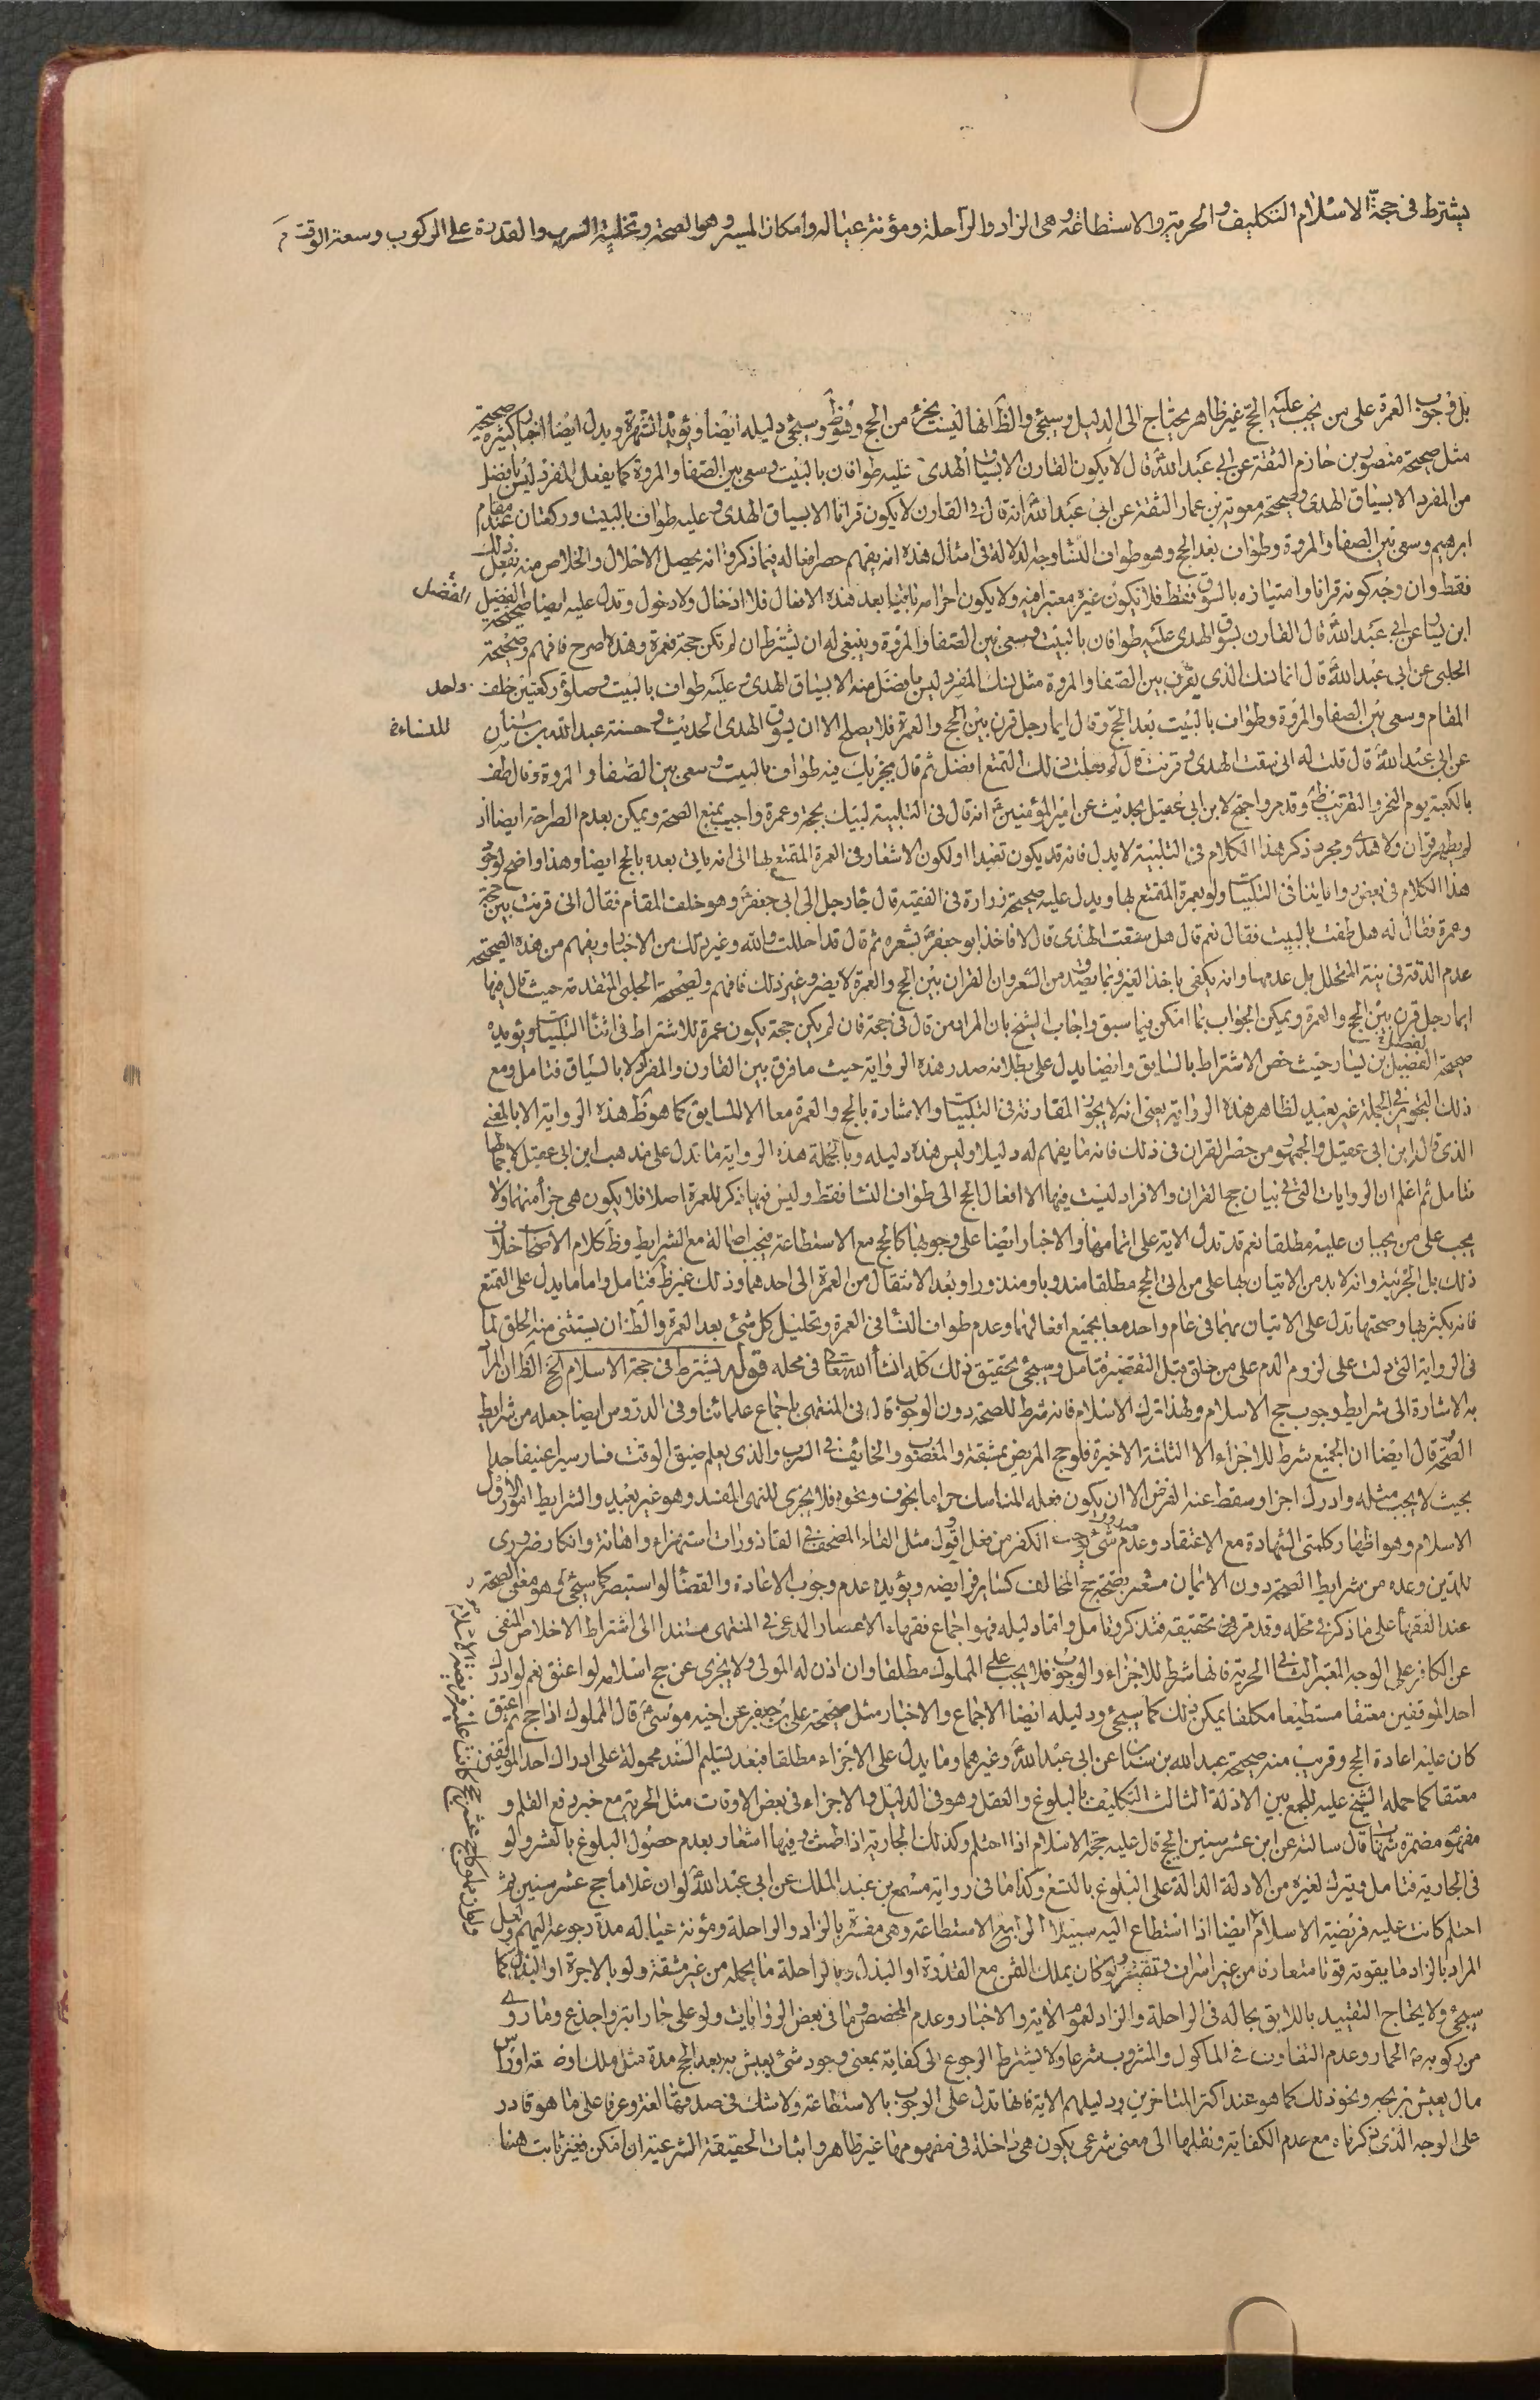 يشترط فى حجة الاسلام التكليف والحرية والاستطاعة وهى الزاد والراحلة ومؤنة عياله وامكان المسير وهو الصحة وتخلية السرب والقدرة على الركوب وسعة الوقت
بل وجوب العمرة على من يجب عليه الحج غير ظاهر يحتاج الى الدليل وسيجئ والظ انها ليست بجزء من الحج وسيجئ دليله ايضا ويؤيده الشهرة ويدل ايضا اخبار كثيرة صحيحة
مثل صحيحة منصور بن حازم الثقة عن ابى عبد الله قال لا يكون القارن الا بسياق الهدى عليه طوافان بالبيت وسعى بين الصفا والمروة كما يفعل المفرد ليس بافضل
من المفرد الا بسياق الهدى وصحيحة معوية بن عمار الثقة عن ابى عبد الله انه قال فى القارن لا يكون قرانا الا بسياق الهدى وعليه طواف بالبيت وركعتان عند مقام
ابرهيم وسعى بين الصفا والمروة وطواف بعد الحج وهو طواف النسا وجه الدلالة فى امثال هذه انه يفهم حصر افعاله فيما ذكروا انه يحصل الاحلال والخلاص منه بفعل ذلك
فقط وان وجه كونه قرانا وامتيازه بالسوق فقط فلا يكون غيره معتبرا فيه ولا يكون احرامه ثانيا بعد هذه الافعال فلا ادخال ولا دخول وتدل عليه ايضا صحيحة الفضيل
الفضل
ابن يسار عن ابى عبد الله قال القارن بسوق الهدى عليه طوافان بالبيت وسعى بين الصفا والمروة وينبغى له ان يشترط ان لم تكن حجة فعمرة وهذه اصرح فافهم وصحيحة
الحلبى عن ابى عبد الله قال انما نسك الذى يقرن بين الصفا والمروة مثل نسك المفرد ليس بافضل منه الا بسياق الهدى وعليه طواف بالبيت وصلوة ركعتين خلف
واحد
المقام وسعى بين الصفا والمروة وطواف بالبيت بعد الحج وقال ايما رجل قرن بين الحج والعمرة فلا يصلح الا ان يسوق الهدى الحديث وحسنة عبد الله بن سنان
للنساء
عن ابى عبد الله قال قلت له انى سقت الهدى وقرنت قال ولم فعلت ذلك التمتع افضل ثم قال يجزيك فيه طواف بالبيت وسعى بين الصفا والمروة وقال طف
بالكعبة يوم النحر والتقريب ظ وقد مر واحتج لابن ابى عقيل بحديث عن امير المؤمنين انه قال فى التلبية لبيك بحجة وعمرة واجيب بمنع الصحة ويمكن بعدم الصراحة ايضا اذ
لم يظهر قران ولا هدى ومجرد ذكر هذا الكلام فى التلبية لا يدل فانه قد يكون تعبدا او لكون الاشعار فى العمرة المتمتع بها الى انه ياتى بعده بالحج ايضا وهذا واضح لوجود
هذا الكلام فى بعض رواياتنا فى التلبيات ولو بعمرة المتمتع بها ويدل عليه صحيحة زرارة فى الفقيه قال جاء رجل الى ابى جعفر وهو خلف المقام فقال انى قرنت بين حجة
وعمرة فقال له هل طفت بالبيت فقال نعم قال هل سقت الهدى قال لا فاخذ ابو جعفر بشعره ثم قال قد احللت والله وغير ذلك من الاخبار ويفهم من هذه الصحيحة
عدم الدقة فى نية المتحلل بل عدمها وانه يكفى باخذ الغير من الشعر وان القران بين الحج والعمرة لا يضر وغير ذلك فافهم ولصحيحة الحلبى المتقدمة حيث قال فيها
ايما رجل قرن بين الحج والعمرة ويمكن الجواب بما امكن فيما سبق واجاب الشيخ بان المراد من قال فى حجة فان لم يكن حجة يكون عمرة للاشتراط فى اثناء التلبيات ويؤيده
صحيحة الفضيل بن يسار حيث خص الاشتراط بالسايق وايضا يدل على بطلانه صدر هذه الرواية حيث ما فرق بين القارن والمفرد الا بالسياق فتامل ومع
ذلك التجوز فى الجملة غير بعيد لظاهر هذه الرواية يعنى انه لا يجوز المقارنة فى التلبيات والاشارة بالحج والعمرة معا الا للسايق كما هو ظ هذه الرواية الا بالمعنى
الذى قال ابن ابى عقيل والجمهور من حصر القران فى ذلك فانه ما يفهم له دليلا وليس هذه دليله وبالجملة هذه الرواية ما تدل على مذهب ابن ابى عقيل لاجمالها
فتامل ثم اعلم ان الروايات التى فى بيان حج القران والافراد ليست فيها الا افعال الحج الى طواف النسا فقط وليس فيها ذكر للعمرة اصلا فلا يكون هى جزأ منهما ولا
يجب على من يجبان عليه مطلقا نعم قد تدل الاية على اتمامها والاخبار ايضا على وجوبها كالحج مع الاستطاعة فيجب اصالة مع الشرايط وظ كلام الاصحاب خلاف
ذلك بل الجزئية وانه لا بد من الاتيان بها على من اتى الحج مطلقا مندوبا ومنذورا وبعد الانتقال من العمرة الى احدهما وذلك غير ظ فتامل واما ما يدل على التمتع
فانه بكثرتها وصحتها تدل على الاتيان بهما فى عام واحد معا بجميع افعالهما وعدم طواف النسا فى العمرة وتحليل كل شئ بعد العمرة والظ ان يستثنى منه الحلق لما
فى الرواية التى دلت على لزوم الدم على من حلق قبل التقصير فتامل وسيجئ تحقيق ذلك كله انشاء الله تعالى فى محله قوله يشترط فى حجة الاسلام الخ الظ ان المراد
به الاشارة الى شرايط وجوب حج الاسلام ولهذا ترك الاسلام فانه شرط للصحة دون الوجوب قال فى المنتهى باجماع علمائنا وفى الدروس ايضا جعله من شرايط
الصحة قال ايضا ان الجميع شرط للاجزاء الا الثلثة الاخيرة فلو حج المريض بمشقة والمغصوب والخائف فى السرب والذى يعلم ضيق الوقت فسار سيرا عنيفا جدا
بحيث لا يجب مثله وادرك اجزا وسقط عنه الفرض الا ان يكون فعله المناسك حراما بخوف ونحوه فلا يجزى للنهى المفسد وهو غير بعيد والشرايط امور الاول
الاسلام وهو اظهار كلمتى الشهادة مع الاعتقاد وعدم صدور شئ يوجب الكفر من فعل او قول مثل القاء المصحف فى القاذورات استهزاء واهانة وانكار ضرورى
للدين وعده من شرايط الصحة دون الايمان مشعر بصحة حج المخالف كساير فرايضه ويؤيده عدم وجوب الاعادة والقضا لو استبصر كما سيجئ وهو معنى الصحة
عند الفقهاء على ما ذكر فى محله وقد مر تحقيقه فتذكر وتامل واما دليله فهو اجماع فقهاء الاعصار المدعى فى المنتهى مستندا الى اشتراط الاخلاص المنفى
عن الكافر على الوجه المعتبر الثانى الحرية فانها شرط للاجزاء والوجوب فلا يجب على المملوك مطلقا وان اذن له المولى ولا يجزى عن حج اسلامه لو اعتق نعم لو ادرك
احد الموقفين معتقا مستطيعا مكلفا يمكن ذلك كما سيجئ ودليله ايضا الاجماع والاخبار مثل صحيحة على بن جعفر عن اخيه موسى قال المملوك اذا حج ثم اعتق
كان عليه اعادة الحج وقريب منه صحيحة عبد الله بن سنان عن ابى عبد الله وغيرهما وما يدل على الاجزاء مطلقا فبعد تسليم السند محمولة على ادراك احد الموقفين
معتقا كما حمله الشيخ عليه للجمع بين الادلة الثالث التكليف بالبلوغ والعقل وهو فى الدليل والاجزاء فى بعض الاوقات مثل الحرية مع خبر رفع القلم و
مفهوم مضمرة شهاب قال سالته عن ابن عشر سنين يحج قال عليه حجة الاسلام اذا احتلم وكذلك الجارية اذا طمثت وفيها اشعار بعدم حصول البلوغ بالعشر ولو
فى الجارية فتامل ويترك لغيره من الادلة الدالة على البلوغ بالتسع وكذا ما فى رواية مسمع بن عبد الملك عن ابى عبد الله لو ان غلاما حج عشر سنين ثم
احتلم كانت عليه فريضة الاسلام ايضا اذا استطاع اليه سبيلا الرابع الاستطاعة وهى مفسرة بالزاد والراحلة ومؤنة عياله مدة رجوعه اليهم ولعل
المراد بالزاد ما يقوته قوتا متعارفا من غير اسراف وتقتير ولو كان يملك الثمن مع القدرة او البذل وبالراحلة ما يحمله من غير مشقة ولو بالاجرة او البذل كما
سيجئ ولا يحتاج التقييد باللايق بحاله فى الراحلة والزاد لعموم الاية والاخبار وعدم المخصص وما فى بعض الروايات ولو على حمار ابتر واجذع وما روى
من ركوبه الحمار وعدم التفاوت فى الماكول والمشروب شرعا ولا يشترط الرجوع الى كفاية بمعنى وجود شئ يعيش به بعد الحج مدة مثل ملك او صنعة او راس
مال يعيش بربحه ونحو ذلك كما هو عند اكثر المتاخرين ودليلهم الاية فانها تدل على الوجوب بالاستطاعة ولا شك فى صدقها لغة وعرفا على ما هو قادر
على الوجه الذى ذكرناه مع عدم الكفاية ونقلها الى معنى شرعى يكون هى داخلة فى مفهومها غير ظاهر واثبات الحقيقة الشرعية ان امكن فغير ثابت هنا